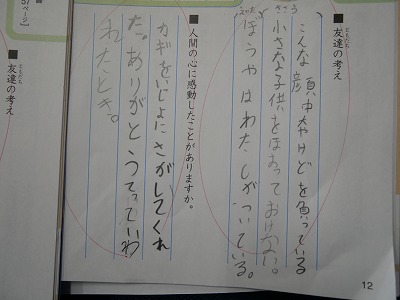 ■友達の考え
ともだち
こんな顔中やけどを負っている
小さな子供をほおっておけない。
ぼうやはわたしがついている。
■人間の心に感動したことがありますか。
カギをいじょにさがしてくれ
た。ありがとうってていわ
れたとき。
■友達の考え
ともだち
57ページ』
12